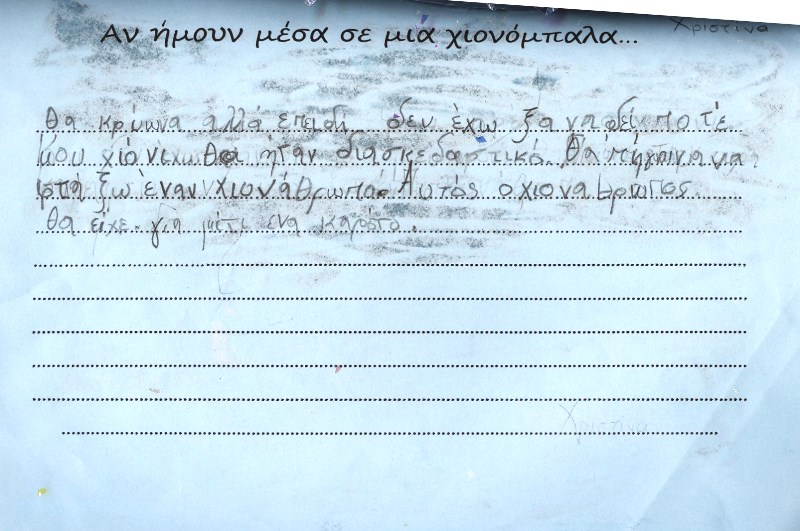 Αν ήμουν μέσα σε μια χιονόμπαλα...
Χριστίνα
θα κρύωνα αλλά επειδή δεν έχω ξαναδεί ποτέ
μου χιόνι θα ήταν διασκεδαστικό. Θα πήγαινα να
φτιάξω έναν χιονάθρωπο. Αυτός ο χιοναθρωπος
θα είχε για μύτι ένα καρότο.
Χριστίνα